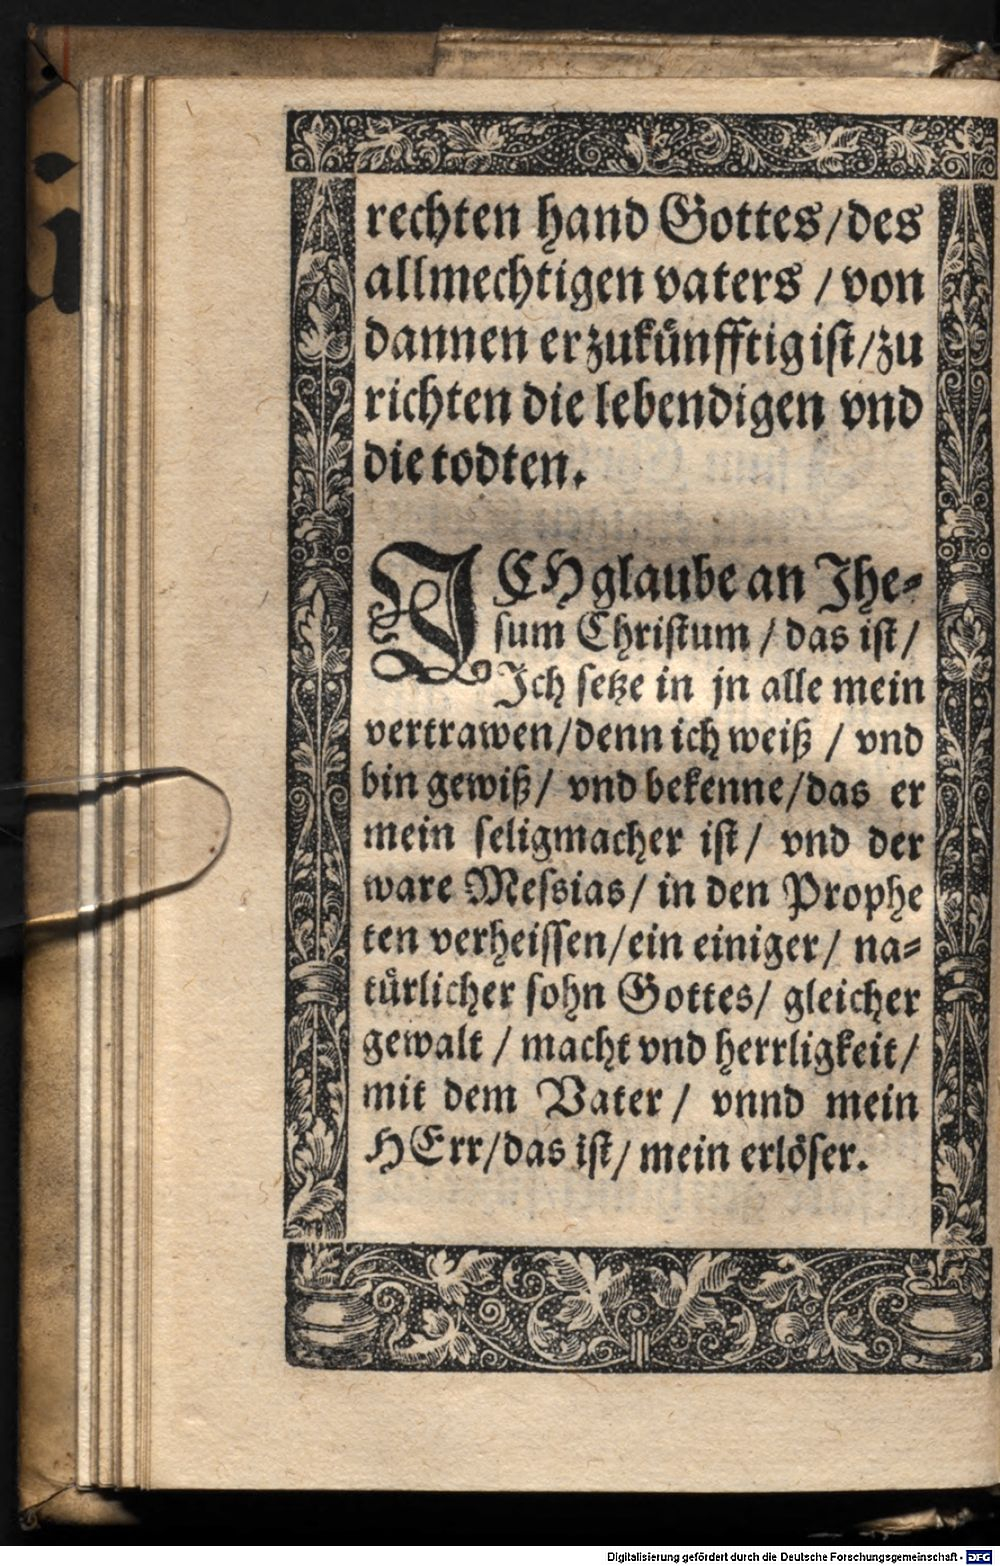 rechten hand Gottes/des
allmechtigen vaters / von
dannen er zukünfftig ist/zu
richten die lebendigen vnd
die todten.
ICH glaube an Jhe⸗
sum Christum / das ist /
Ich setze in jn alle mein
vertrawen/denn ich weiß / vnd
bin gewiß/ vnd bekenne/das er
mein seligmacher ist/ vnd der
ware Messias/ in den Prophe
ten verheissen/ein einiger/ na⸗
türlicher sohn Gottes/ gleicher
gewalt / macht vnd herrligkeit/
mit dem Vater / vnnd mein
HErr/das ist/ mein erlöser.
Digitalisierung gefördert durch die Deutsche Forschungsgemeinschaft - DFG